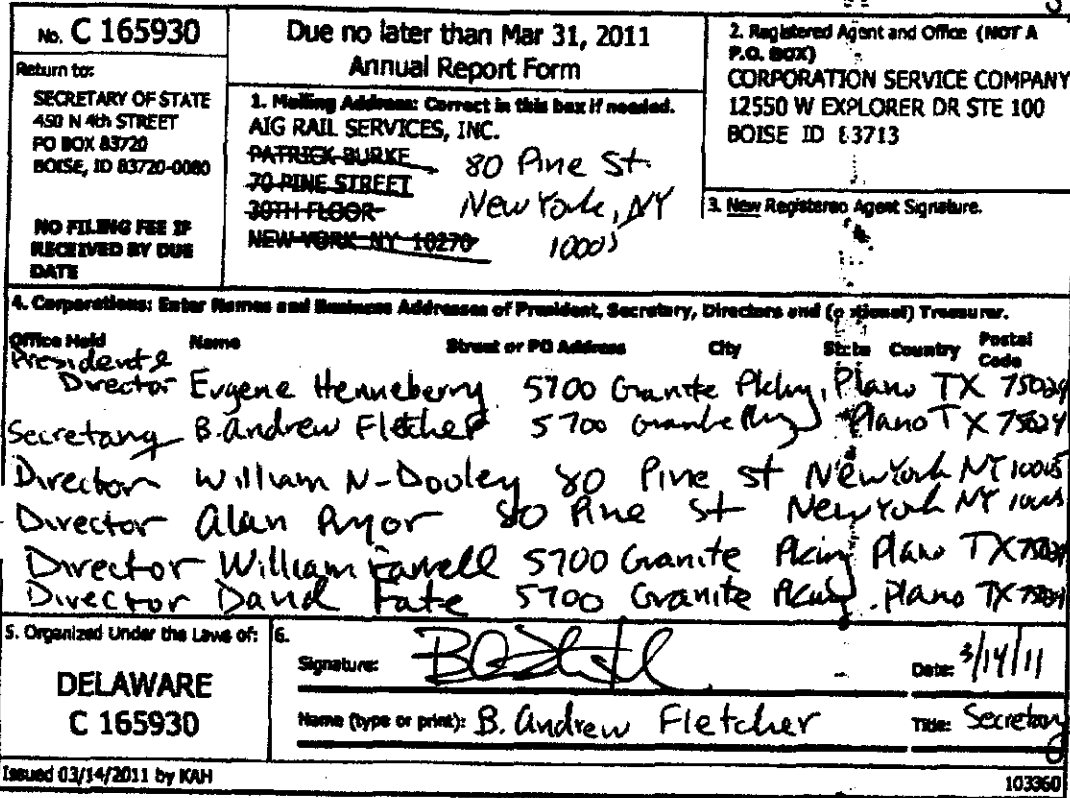 No. C 165930
Return to:
SECRETARY OF STATE
450 N 4th STREET
PO BOX 83720
BOISE, ID 83720-0080
NO FILING FEE IF
RECEIVED BY DUE
DATE
Due no later than Mar 31, 2011
Annual Report Form
1. Mailing Address: Correct in this box if needed.
AIG RAIL SERVICES, INC.
PATRICK BURKE
70 PINE STREET
30TH FLOOR
NEW YORK NY 10270
80 Pine St
New York, NY
10005
2. Registered Agent and Office (NOT A
P.O. BOX)
CORPORATION SERVICE COMPANY
12550 W EXPLORER DR STE 100
BOISE ID 83713
3. New Registered Agent Signature.
4. Corporations: Enter Names and Business Addresses of President, Secretary, Directors and (optional) Treasurer.
Office Held Name Street or PO Address City State Country Postal Code
President &
Director Eugene Henneberry 5700 Granite Pkwy, Plano TX 75024
Secretary B. Andrew Fletcher 5700 Granite Pkwy Plano TX 75024
Director William N. Dooley 80 Pine St New York NY 10005
Director Alan Pryor 80 Pine St New York NY 10005
Director William Farrell 5700 Granite Pkwy Plano TX 75024
Director David Fate 5700 Granite Pkwy. Plano TX 75024
5. Organized Under the Laws of:
DELAWARE
C 165930
6.
Signature: Date: 3/14/11
Name (type or print): B. Andrew Fletcher Title: Secretary
Issued 03/14/2011 by KAH 103360